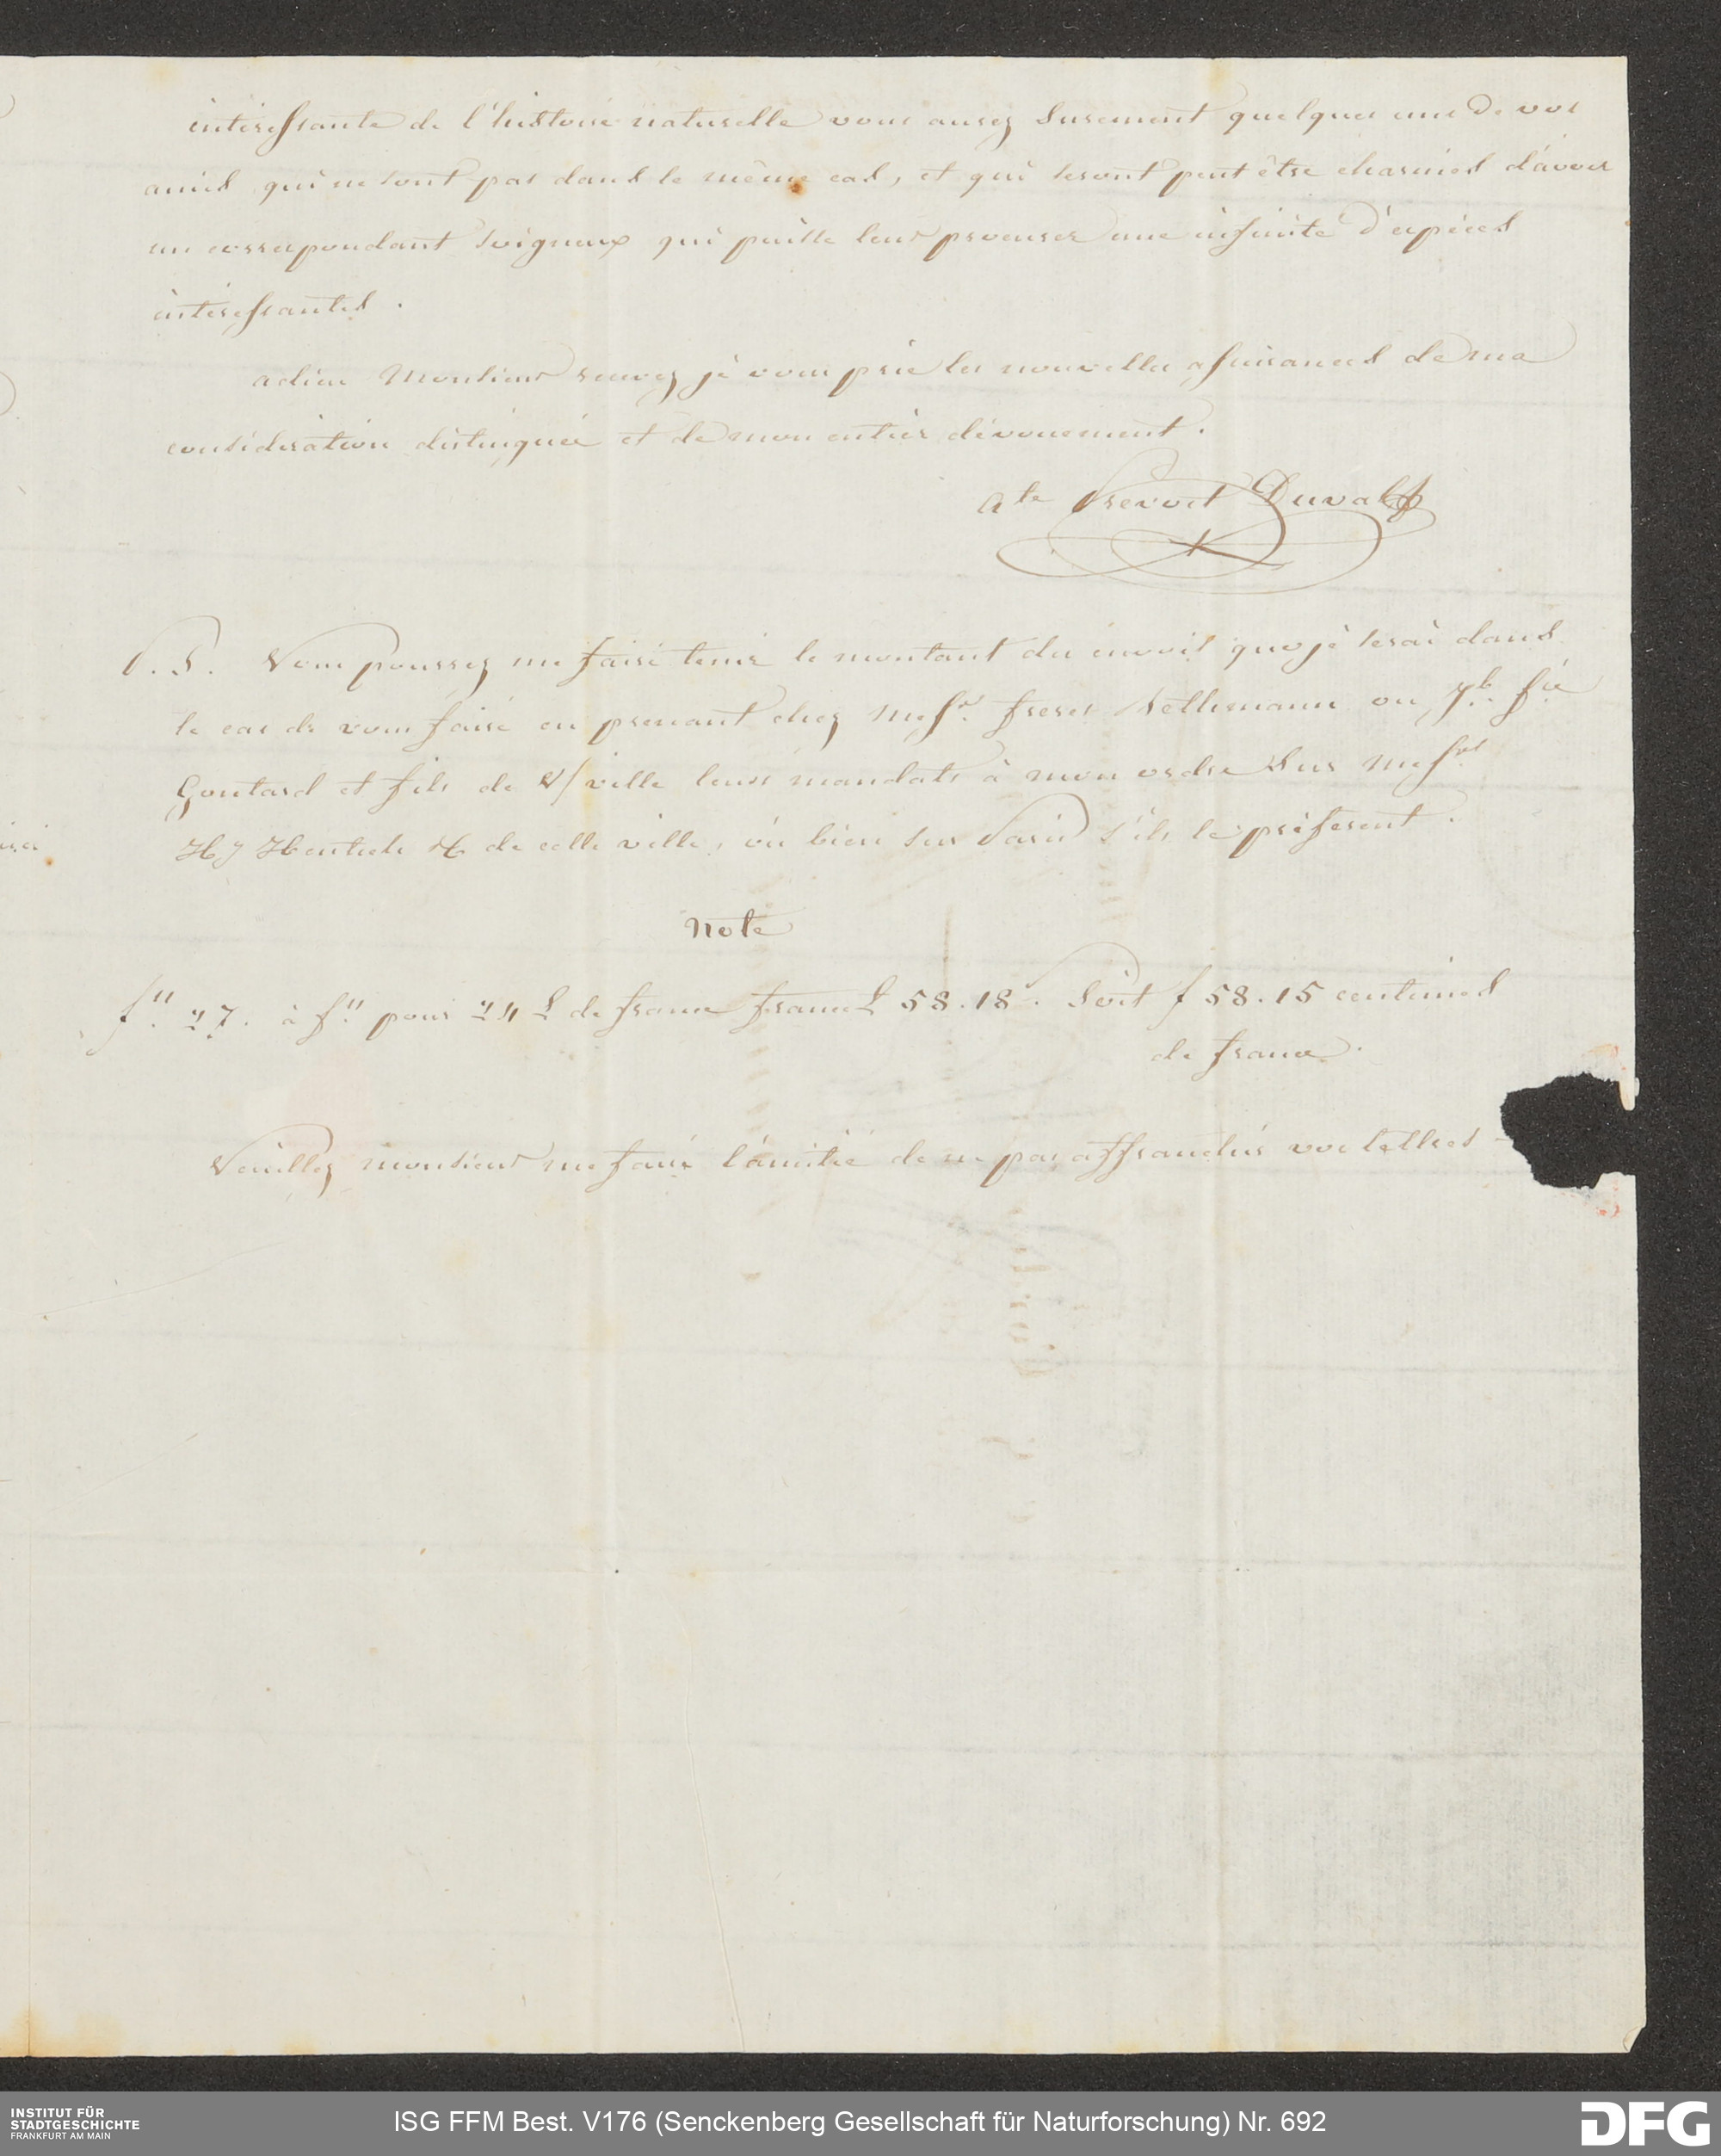 intéressante de l'histoire naturelle vous aurez surement quelques uns de vos
amis qui ne sont pas dans le même cas, et qui seront peut être charmés d'avoir
un correspondant soigneux qui puisse leur procurer une infinité d'espéces
intéressantes.
adieu Monsieur recevez je vous prie les nouvelles assurances de ma
considération distinguée et de mon entier dévouement.
Prevost Duval
P. S. Vous pourrez me faire tenir le montant des envois que je serai dans
le cas de vous faire en prenant chez Mess.rs freres Bethmann ou
Goutard et fils de V/ ville leurs mandats à mon ordre sur Mess.rs
Hentsch & de cette ville, ou bien sur Paris s'ils le préferent.
Note
f" 27. à f" pour 24 L de france 58.18. Soit f 58.15 centimes
de france.
Veuillez monsieur me faire l'amitié de ne pas affranchir vos lettres
INSTITUT FÜR
STADTGESCHICHTE
FRANKFURT AM MAIN
ISG FFM Best. V176 (Senckenberg Gesellschaft für Naturforschung) Nr. 692
DFG